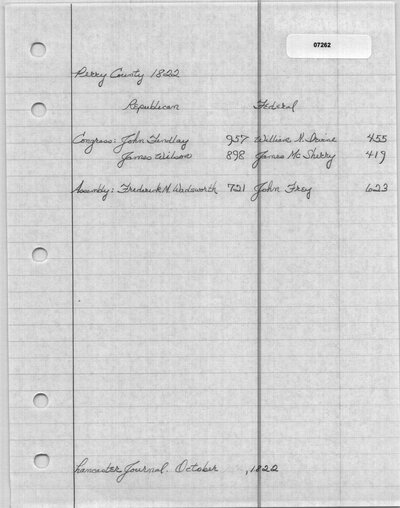 07262
Perry County 1822
Republican Federal
Congress: John Findlay 957 William N. Irvine 455
James Wilson 898 James McSherry 419
Assembly: Frederick M. Wadsworth 721 John Frey 623
Lancaster Journal. October , 1822